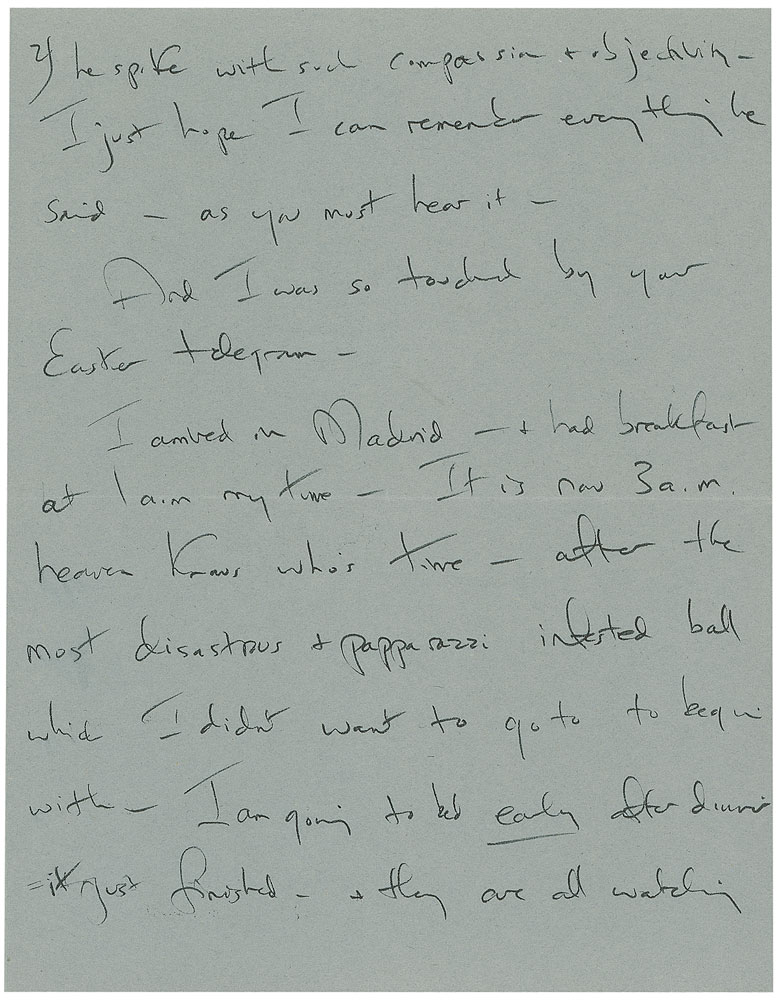 2) he spoke with such compassion + objectivity –
I just hope I can remember everything he
said – as you must hear it –
And I was so touched by your
Easter telegram –
I arrived in Madrid – + had breakfast
at 1 a.m my time – It is now 3 a.m.
heaven knows who's time – after the
most disastrous + papparazzi infested ball
which I didn't want to go to to begin
with – I am going to bed early after dinner
= it just finished – + they are all watching